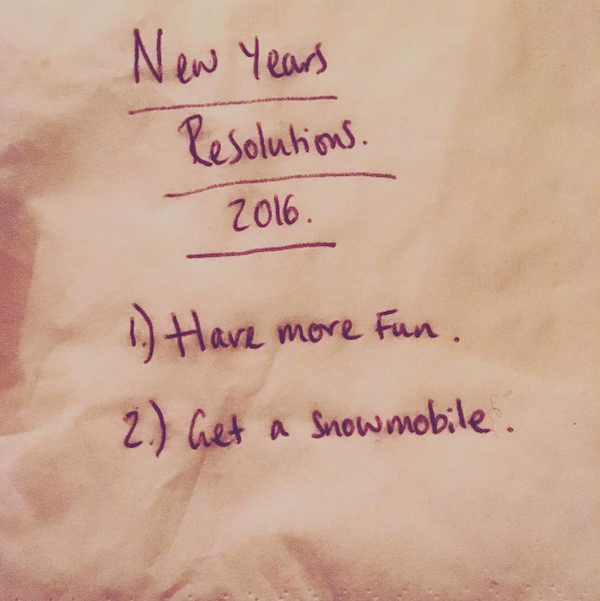 New Years
Resolutions.
2016.
1.) Have more Fun.
2.) Get a snowmobile.